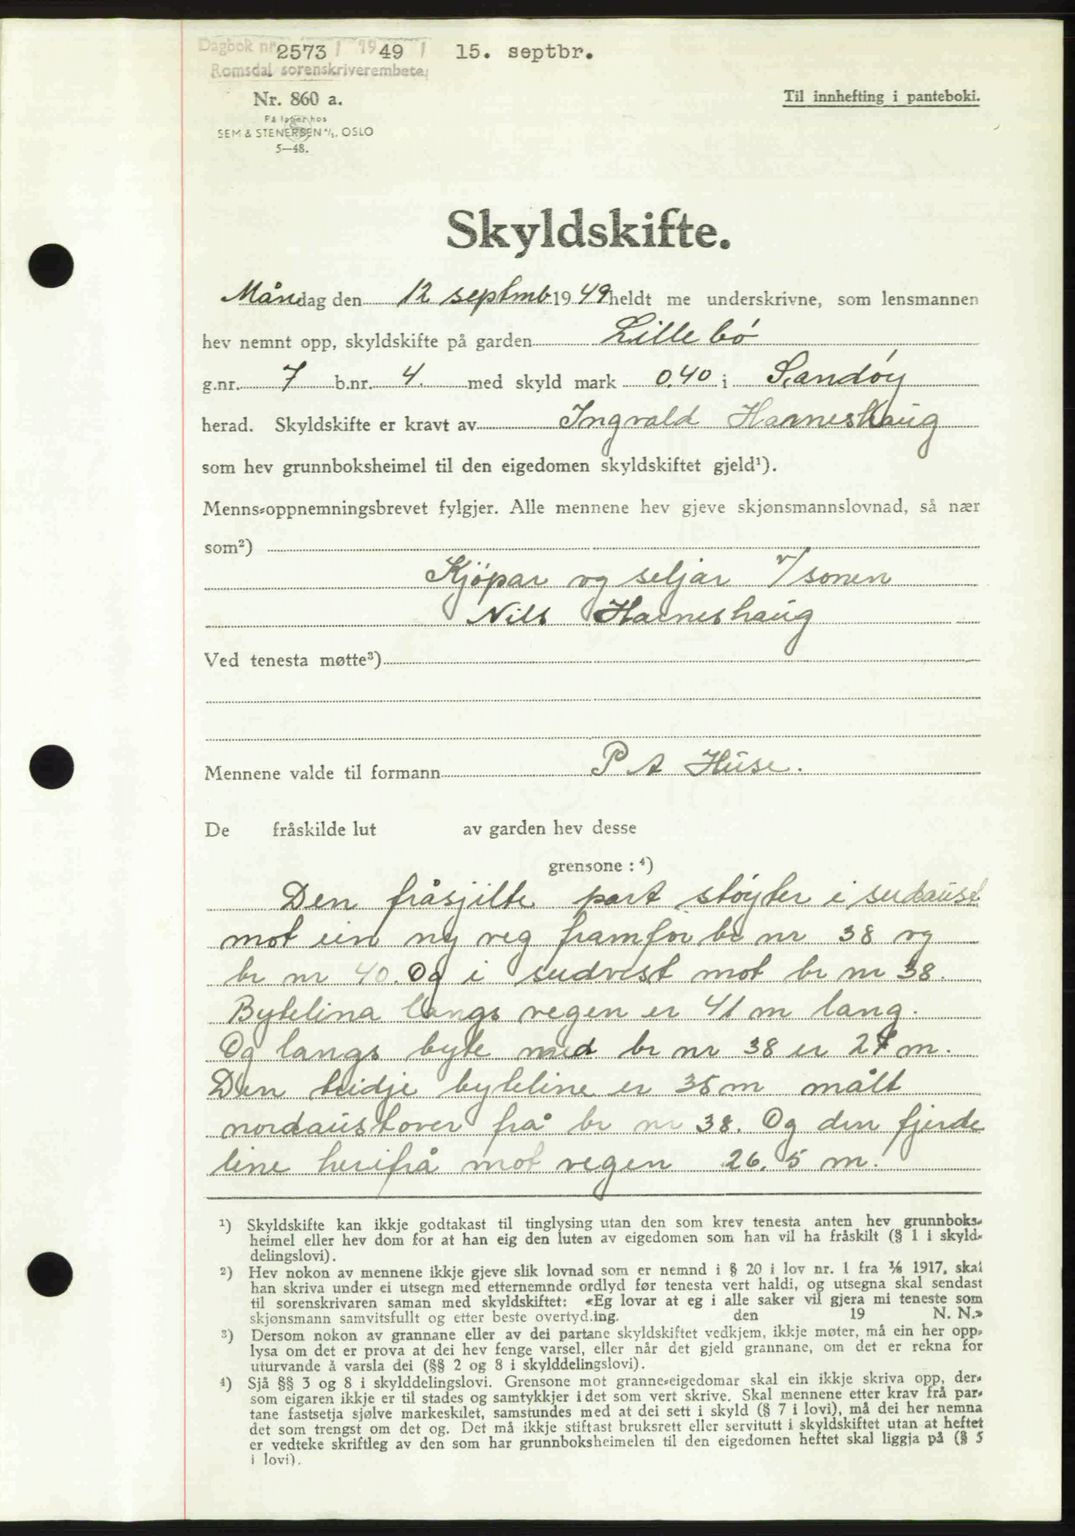 Dagbok nr. 2573 1949 15. septbr.
Romsdal sorenskriverembete
Nr. 860 a.
Til innhefting i panteboki.
På lager hos
SEM & STENERSEN A/S, OSLO
5—48.
Skyldskifte.
Måndag den 12 septmb. 1949 heldt me underskrivne, som lensmannen
hev nemnt opp, skyldskifte på garden Lillebö
g.nr. 7 b.nr. 4. med skyld mark 0,40 i Sandöy
herad. Skyldskifte er kravt av Ingvald Harneshaug
som hev grunnboksheimel til den eigedomen skyldskiftet gjeld¹).
Menns-oppnemningsbrevet fylgjer. Alle mennene hev gjeve skjønsmannslovnad, så nær
som²)
Kjöpar og seljar v/sonen
Nils Harneshaug
Ved tenesta møtte³)
Mennene valde til formann P A Huse.
De fråskilde lut av garden hev desse
grensone : ⁴)
Den fråsjilte part stöyter i sudaust
mot ein ny veg framfor br nr 38 og
br nr 40. Og i sudvest mot br nr 38.
Bytelina langs vegen er 41 m lang.
Og langs byte med br nr 38 er 27 m.
Den tridje byteline er 35 m målt
nordaustover frå br nr 38. Og den fjerde
line herifrå mot vegen 26.5 m.
¹) Skyldskifte kan ikkje godtakast til tinglysing utan den som krev tenesta anten hev grunnboks-
heimel eller hev dom for at han eig den luten av eigedomen som han vil ha fråskilt (§ 1 i skyld-
delingslovi).
²) Hev nokon av mennene ikkje gjeve slik lovnad som er nemnd i § 20 i lov nr. 1 fra 1/6 1917, skal
han skriva under ei utsegn med etternemnde ordlyd før tenesta vert haldi, og utsegna skal sendast
til sorenskrivaren saman med skyldskiftet: «Eg lovar at eg i alle saker vil gjera mi teneste som
skjønsmann samvitsfullt og etter beste overtyding. den 19 N. N.»
³) Dersom nokon av grannane eller av dei partane skyldskiftet vedkjem, ikkje møter, må ein her opp-
lysa om det er prova at dei hev fenge varsel, eller når det gjeld grannane, om det er rekna for
uturvande å varsla dei (§§ 2 og 8 i skylddelingslovi).
⁴) Sjå §§ 3 og 8 i skylddelingslovi. Grensone mot granne-eigedomar skal ein ikkje skriva opp, der-
som eigaren ikkje er til stades og samtykkjer i det som vert skrive. Skal mennene etter krav frå par-
tane fastsetja sjølve markeskilet, samstundes med at dei sett i skyld (§ 7 i lovi), må dei her nemna
det som trengst om det og. Det må ikkje stiftast bruksrett eller servitutt i skyldskiftet utan at heftet
er vedteke skriftleg av den som har grunnboksheimelen til den eigedomen heftet skal liggja på (§ 5
i lovi).